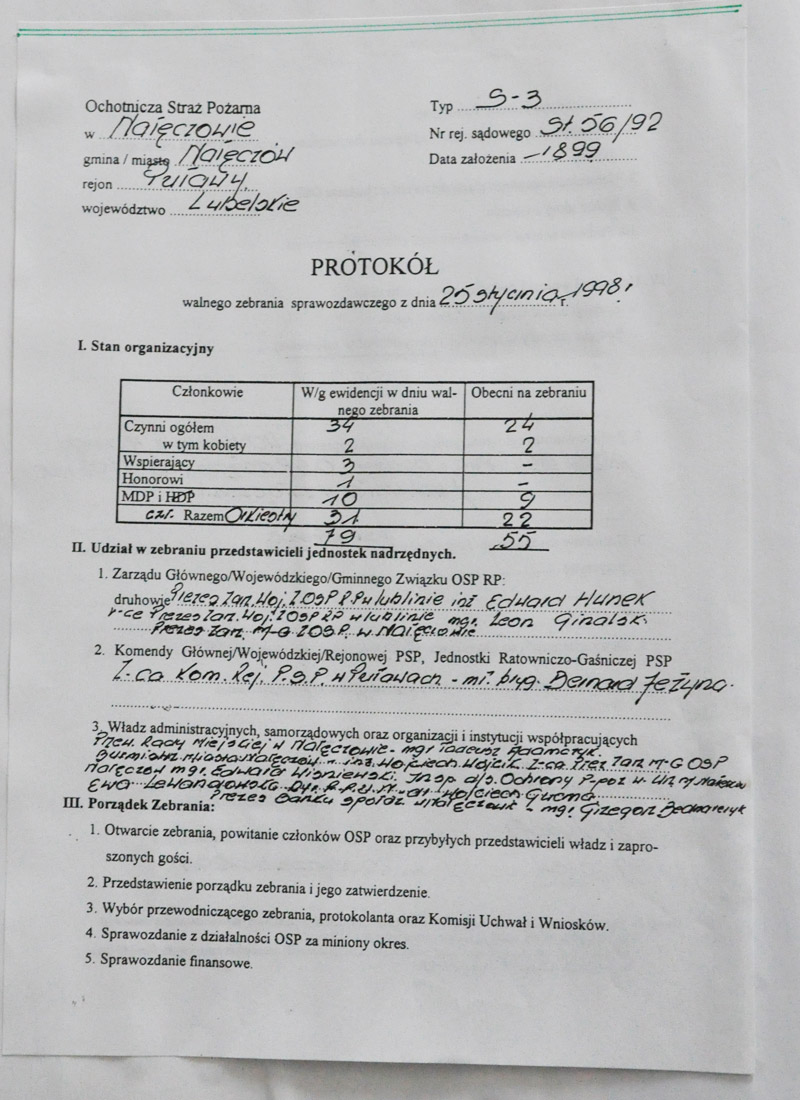 Ochotnicza Straż Pożarna
w Nałęczowie
gmina / miasto Nałęczów
rejon Puławy
województwo Lubelskie
Typ S-3
Nr rej. sądowego St. 56/92
Data założenia 1899
PROTOKÓŁ
walnego zebrania sprawozdawczego z dnia 25 stycznia 1998 r.
I. Stan organizacyjny
Członkowie W/g ewidencji w dniu wal- Obecni na zebraniu
nego zebrania
Czynni ogółem 34 24
w tym kobiety 2 2
Wspierający 3 -
Honorowi 1 -
MDP i HDP 10 9
czł. Razem Orkiestry 31 22
79 55
II. Udział w zebraniu przedstawicieli jednostek nadrzędnych.
1. Zarządu Głównego/Wojewódzkiego/Gminnego Związku OSP RP:
druhowie Prezes Zarz. Woj. ZOSP RP w Lublinie inż Edward Hunek
V-ce Prezes Zarz. Woj. ZOSP RP w Lublinie mgr. Leon Ginalski
Prezes Zarz. M-G ZOSP. w Nałęczowie
2. Komendy Głównej/Wojewódzkiej/Rejonowej PSP, Jednostki Ratowniczo-Gaśniczej PSP
Z-ca Kom. Rej. P.S.P. w Puławach - mł. bryg. Bernard Jeżyna.
3. Władz administracyjnych, samorządowych oraz organizacji i instytucji współpracujących
Przew. Rady Miejskiej w Nałęczowie - mgr Tadeusz Adamczyk.
Burmistrz Miasta Nałęczów - inż. Wojciech Wójcik Z-ca Prez. Zarz M-G OSP
Nałęczów mgr. Edward Wiśniewski, Insp. d/s. Ochrony P.poż w
Ewa Lewandowska Dyr. Wojciech
Prezes Banku Spółdz w Nałęczowie - mgr. Grzegorz Bednarczyk
III. Porządek Zebrania:
1. Otwarcie zebrania, powitanie członków OSP oraz przybyłych przedstawicieli władz i zapro-
szonych gości.
2. Przedstawienie porządku zebrania i jego zatwierdzenie.
3. Wybór przewodniczącego zebrania, protokolanta oraz Komisji Uchwał i Wniosków.
4. Sprawozdanie z działalności OSP za miniony okres.
5. Sprawozdanie finansowe.